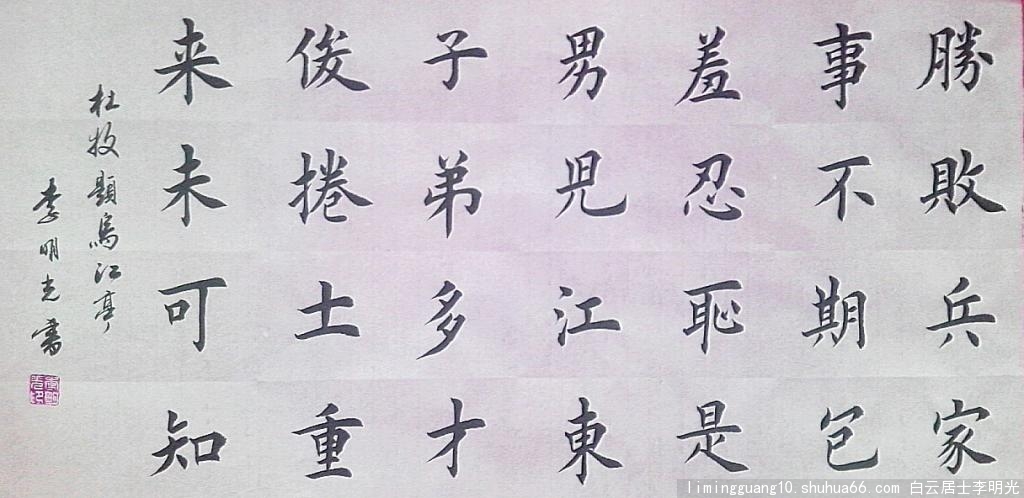 勝敗兵家
事不期包
羞忍恥是
男児江東
子弟多才
俊捲土重
来未可知
杜牧題烏江亭
李明光書
limingguang10.shuhua66.com 白云居士李明光